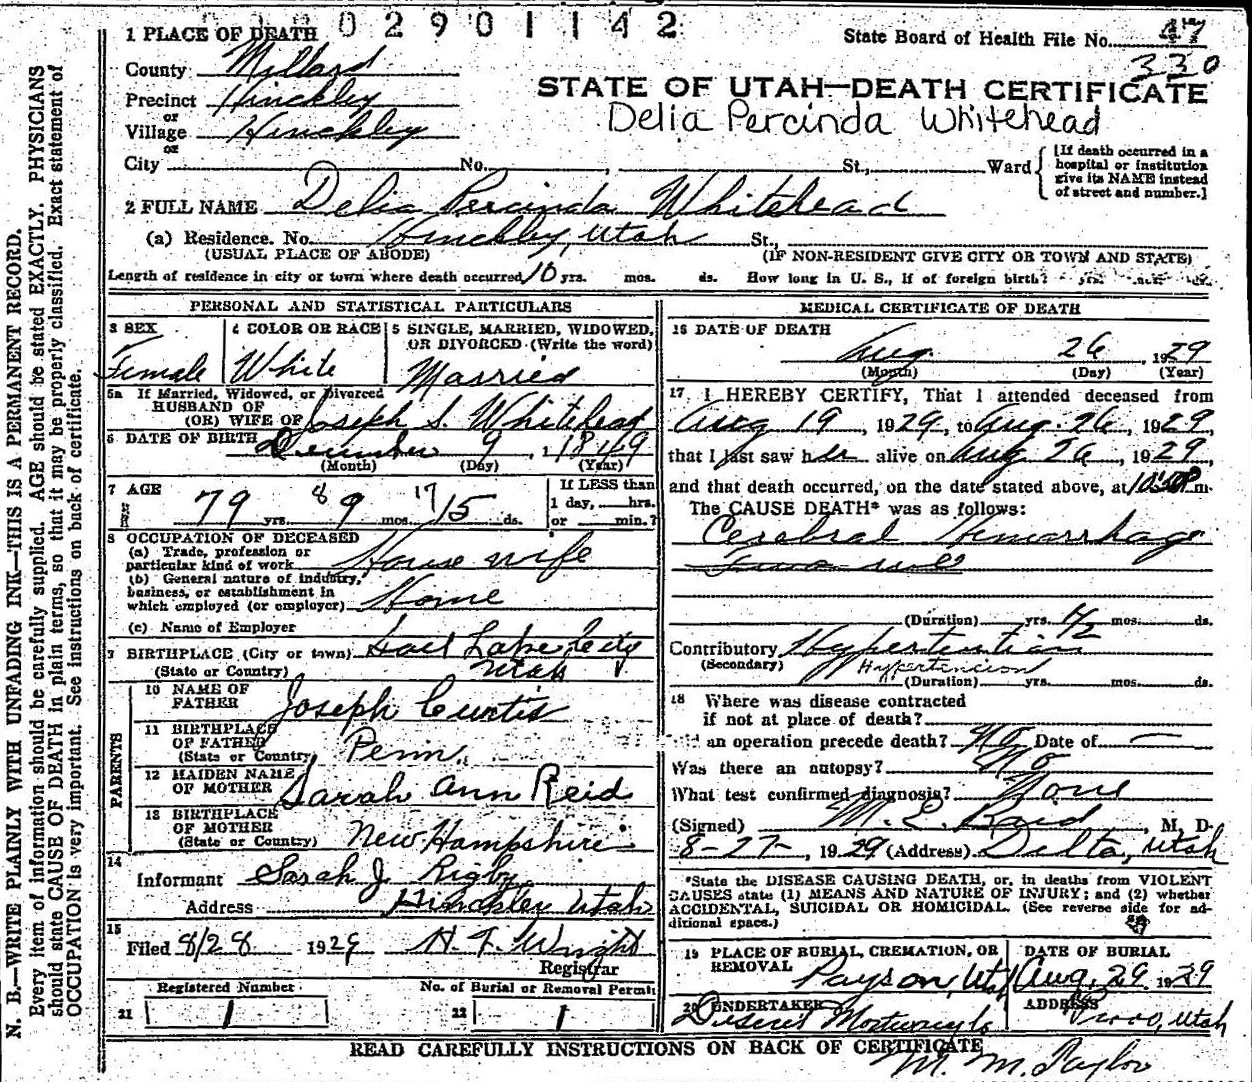 02901142
1 PLACE OF DEATH
State Board of Health File No. 47
330
County Millard
STATE OF UTAH—DEATH CERTIFICATE
Precinct Hinckley
or
Delia Percinda Whitehead
Village Hinckley
or
City No. , St., Ward
[If death occurred in a hospital or institution give its NAME instead of street and number.]
2 FULL NAME Delia Percinda Whitehead
(a) Residence. No. Hinckley, Utah St.,
(USUAL PLACE OF ABODE) (IF NON-RESIDENT GIVE CITY OR TOWN AND STATE)
Length of residence in city or town where death occurred 10 yrs. mos. ds. How long in U. S., if of foreign birth? yrs. mos. ds.
PERSONAL AND STATISTICAL PARTICULARS
3 SEX
Female
4 COLOR OR RACE
White
5 SINGLE, MARRIED, WIDOWED, OR DIVORCED (Write the word)
Married
5a If Married, Widowed, or Divorced
HUSBAND OF
(OR) WIFE OF Joseph S. Whitehead
6 DATE OF BIRTH December 9, 1849
(Month) (Day) (Year)
7 AGE
79 yrs. 8 9 mos. 17 15 ds.
If LESS than
1 day, hrs.
or min.?
8 OCCUPATION OF DECEASED
(a) Trade, profession or
particular kind of work House wife
(b) General nature of industry,
business, or establishment in
which employed (or employer) Home
(c) Name of Employer
9 BIRTHPLACE (City or town) Salt Lake City
(State or Country) Utah
PARENTS
10 NAME OF
FATHER Joseph Curtis
11 BIRTHPLACE
OF FATHER
(State or Country Penn.
12 MAIDEN NAME
OF MOTHER Sarah Ann Reid
13 BIRTHPLACE
OF MOTHER
(State or Country) New Hampshire
14
Informant Sarah J Rigby
Address Hinckley Utah
15
Filed 8/28 1929 H. F. Wright
Registrar
Registered Number No. of Burial or Removal Permit
21 1 22 1
MEDICAL CERTIFICATE OF DEATH
16 DATE OF DEATH
Aug. 26, 1929
(Month) (Day) (Year)
17 I HEREBY CERTIFY, That I attended deceased from
Aug 19, 1929, to Aug. 26, 1929,
that I last saw her alive on Aug 26, 1929,
and that death occurred, on the date stated above, at m.
The CAUSE DEATH* was as follows:
Cerebral Hemorrhage
(Duration) yrs. mos. ds.
Contributory Hypertention
(Secondary) Hypertencion
(Duration) yrs. mos. ds.
18 Where was disease contracted
if not at place of death?
Did an operation precede death? No Date of —
Was there an autopsy? No
What test confirmed diagnosis? None
(Signed) M. E. , M. D.
8-27-, 1929 (Address) Delta, Utah
*State the DISEASE CAUSING DEATH, or, in deaths from VIOLENT
CAUSES state (1) MEANS AND NATURE OF INJURY; and (2) whether
ACCIDENTAL, SUICIDAL OR HOMICIDAL. (See reverse side for ad-
ditional space.)
19 PLACE OF BURIAL, CREMATION, OR
REMOVAL Payson, Utah
DATE OF BURIAL
Aug. 29 1929
20 UNDERTAKER
Deseret
ADDRESS
Provo, Utah
READ CAREFULLY INSTRUCTIONS ON BACK OF CERTIFICATE
M. M. Taylor
N. B.—WRITE PLAINLY WITH UNFADING INK—THIS IS A PERMANENT RECORD.
Every item of information should be carefully supplied. AGE should be stated EXACTLY. PHYSICIANS
should state CAUSE OF DEATH in plain terms, so that it may be properly classified. Exact statement of
OCCUPATION is very important. See instructions on back of certificate.